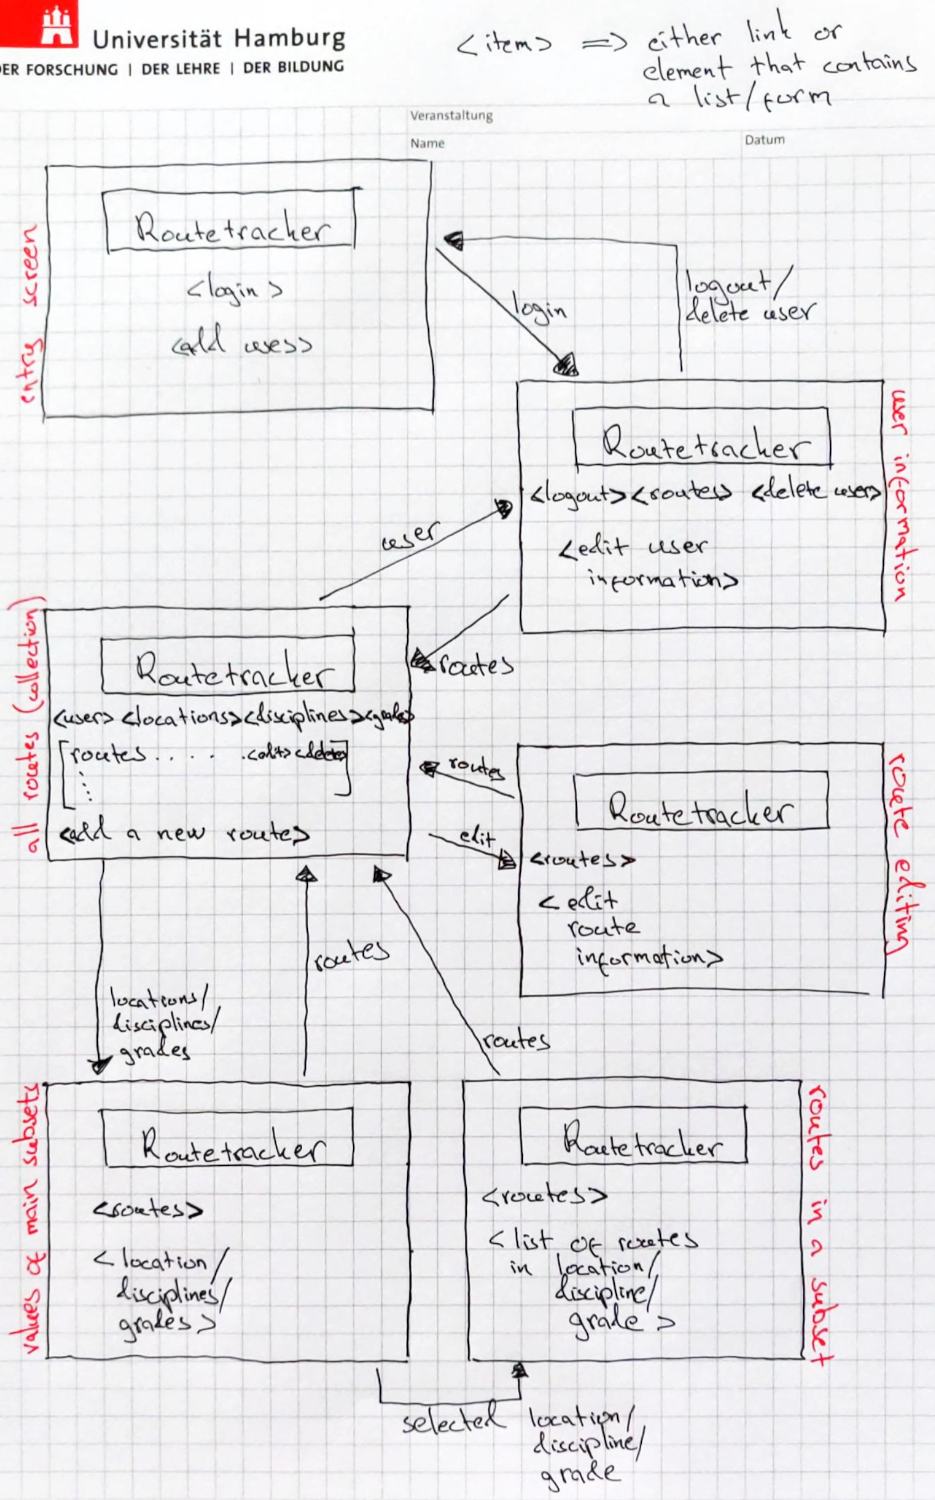 Universität Hamburg
DER FORSCHUNG | DER LEHRE | DER BILDUNG
<item> => either link or
element that contains
a list/form
Veranstaltung
Name
Datum
entry screen
Routetracker
<login>
<add user>
login
logout/
delete user
user information
Routetracker
<logout> <routes> <delete user>
<edit user
information>
user
routes
all routes (collection)
Routetracker
<user> <locations> <disciplines> <grades>
[routes . . . . . <edit> <delete>]
<add a new route>
routes
edit
route editing
Routetracker
<routes>
<edit
route
information>
locations/
disciplines/
grades
routes
routes
values of main subsets
Routetracker
<routes>
<location/
disciplines/
grades>
routes in a subset
Routetracker
<routes>
<list of routes
in location/
discipline/
grade>
selected location/
discipline/
grade